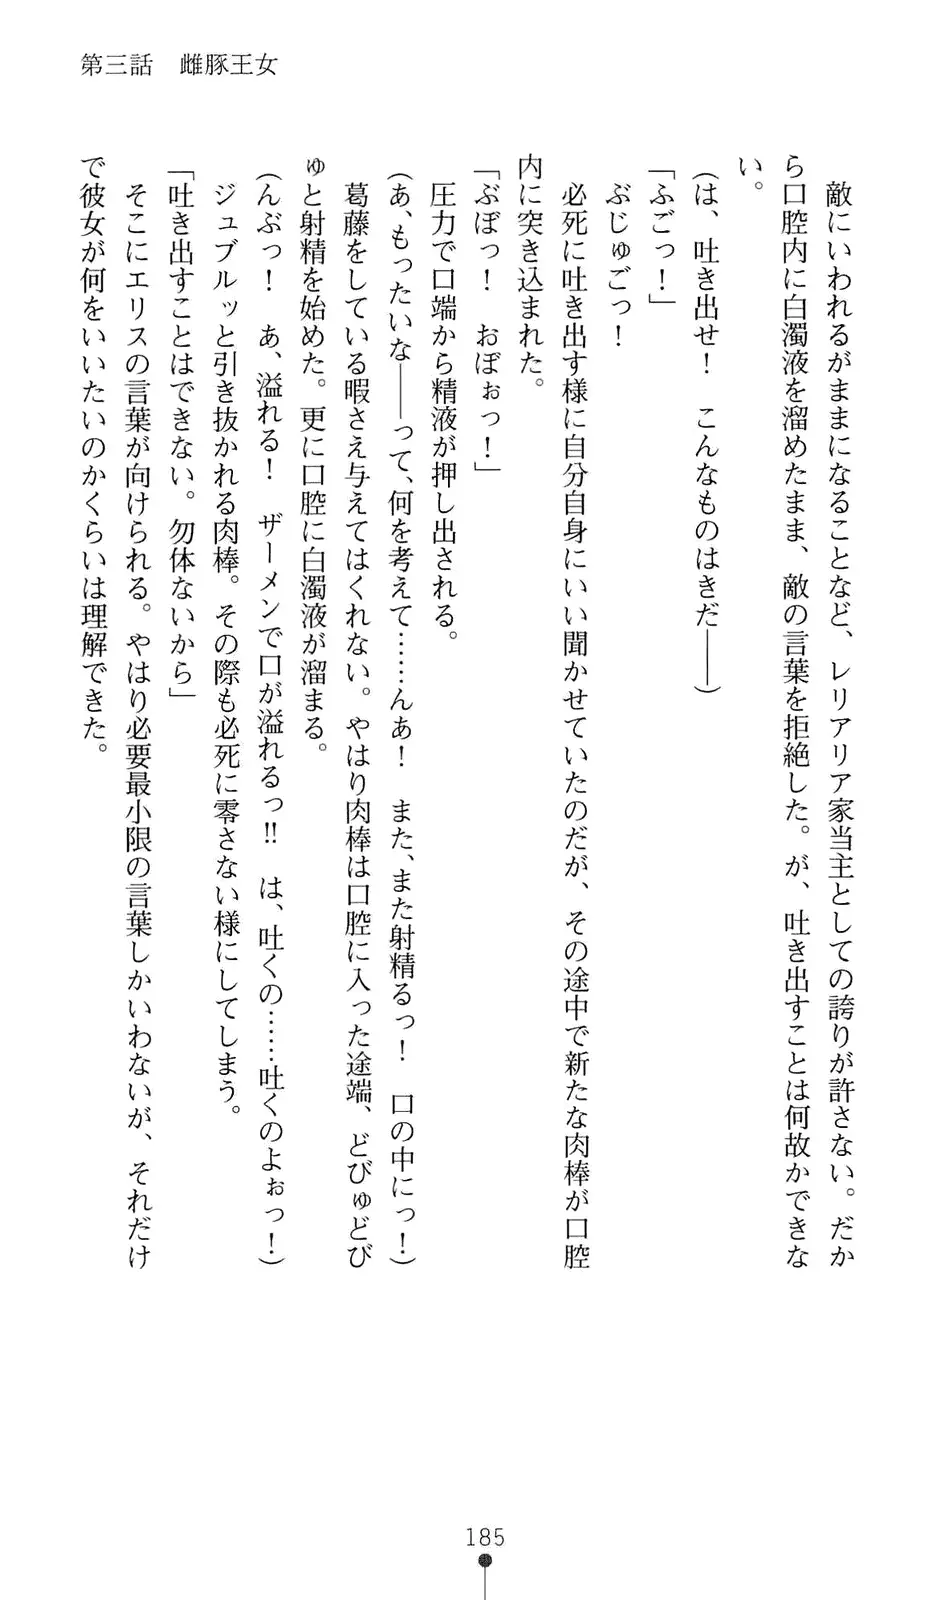 第三話　雌豚王女
　敵にいわれるがままになることなど、レリアリア家当主としての誇りが許さない。だか
ら口腔内に白濁液を溜めたまま、敵の言葉を拒絶した。が、吐き出すことは何故かできな
い。
(は、吐き出せ！　こんなものはきだ――)
「ふごっ！」
　ぶじゅごっ！
　必死に吐き出す様に自分自身にいい聞かせていたのだが、その途中で新たな肉棒が口腔
内に突き込まれた。
「ぶぼっ！　おぼぉっ！」
　圧力で口端から精液が押し出される。
(あ、もったいな――って、何を考えて……んあ！　また、また射精るっ！　口の中にっ！)
　葛藤をしている暇さえ与えてはくれない。やはり肉棒は口腔に入った途端、どびゅどび
ゅと射精を始めた。更に口腔に白濁液が溜まる。
(んぶっ！　あ、溢れる！　ザーメンで口が溢れるっ!!　は、吐くの……吐くのよぉっ！)
　ジュブルッと引き抜かれる肉棒。その際も必死に零さない様にしてしまう。
「吐き出すことはできない。勿体ないから」
　そこにエリスの言葉が向けられる。やはり必要最小限の言葉しかいわないが、それだけ
で彼女が何をいいたいのかくらいは理解できた。
185